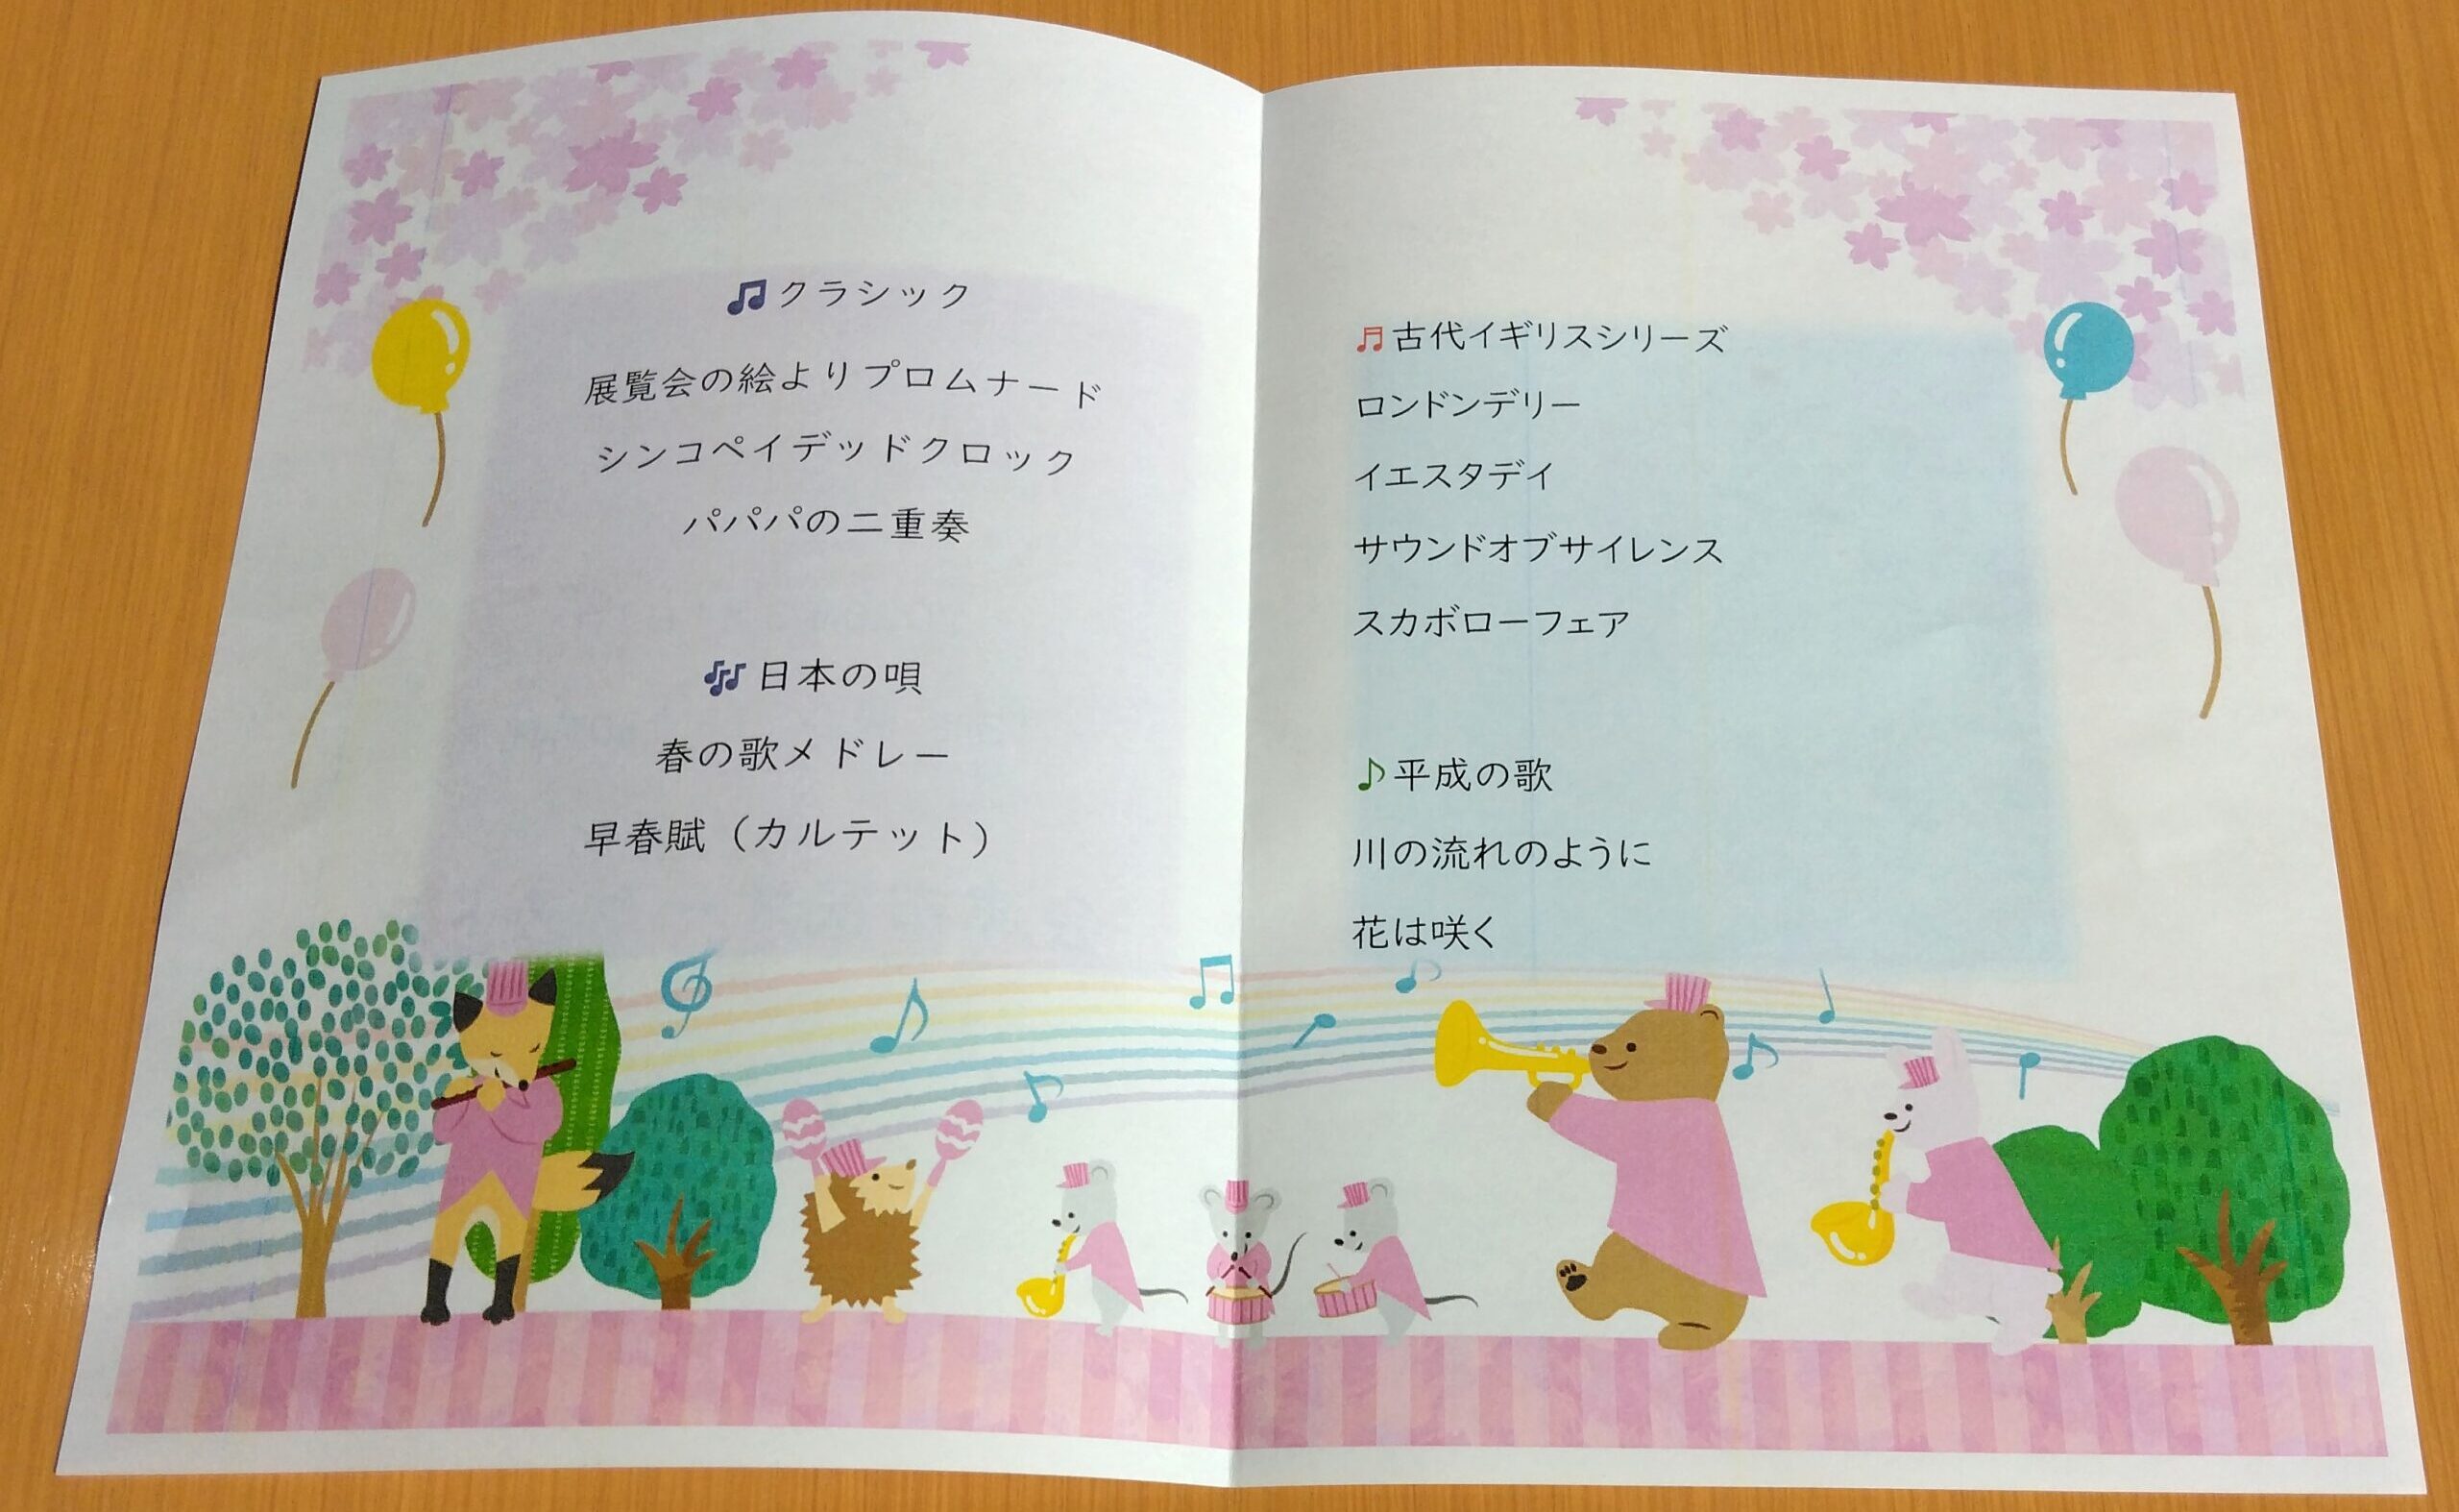 ♫クラシック
展覧会の絵よりプロムナード
シンコペイデッドクロック
パパパの二重奏
日本の唄
春の歌メドレー
早春賦（カルテット）
♬古代イギリスシリーズ
ロンドンデリー
イエスタデイ
サウンドオブサイレンス
スカボローフェア
♪平成の歌
川の流れのように
花は咲く